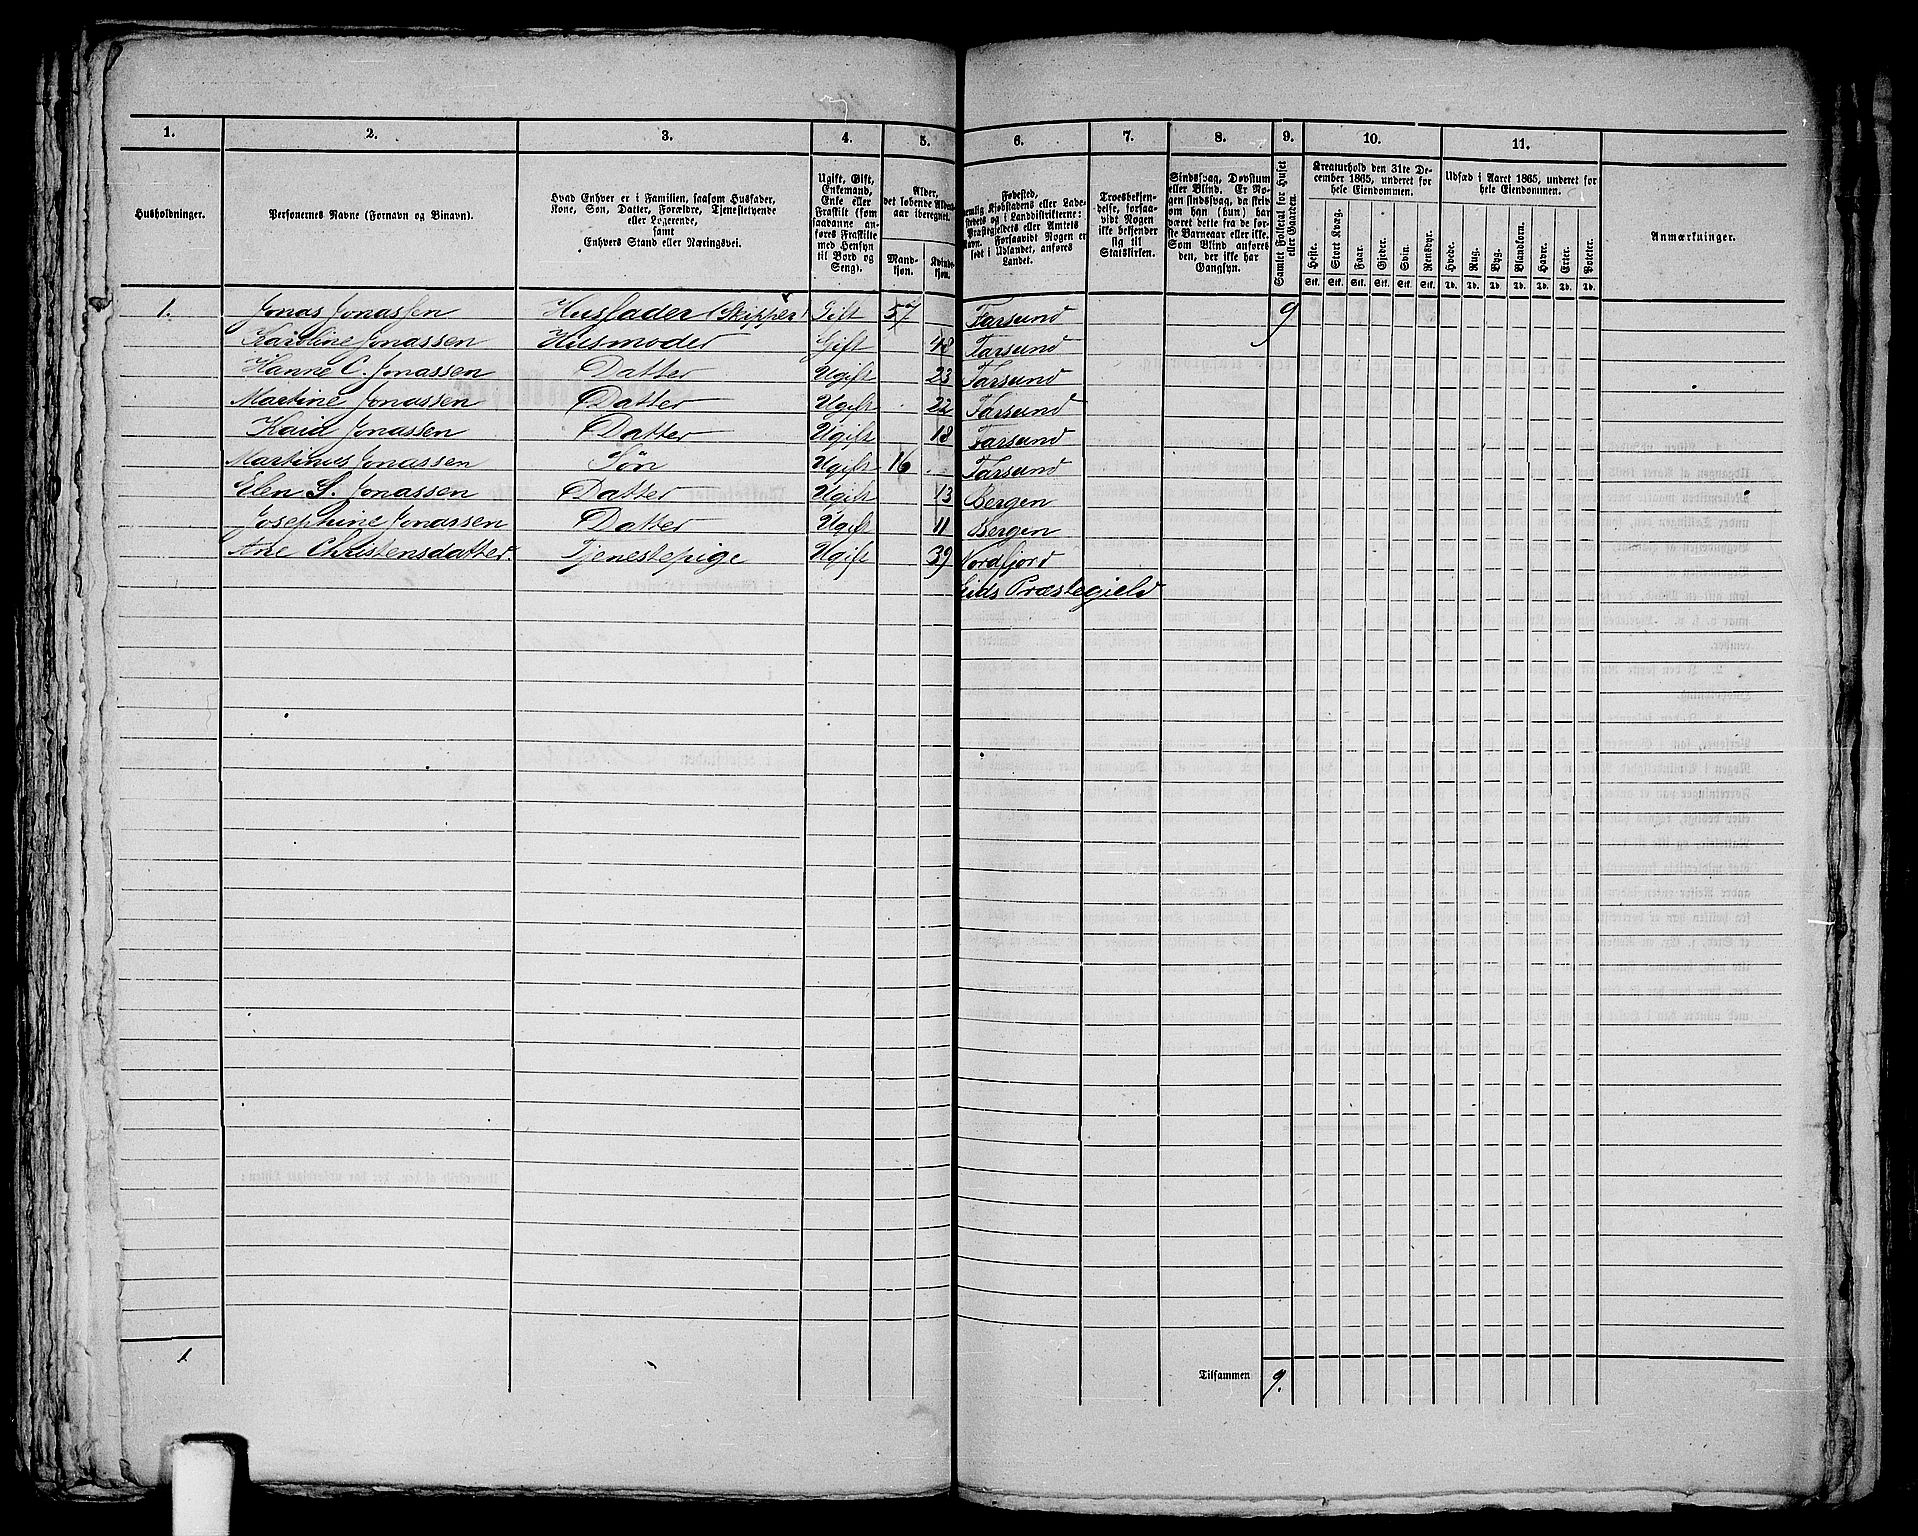 1. 2. 3. 4. 5. 6. 7. 8. 9. 10. 11.
Husholdninger.
Personernes Navne (Fornavn og Binavn).
Hvad Enhver er i Familien, saasom Husfader,
Kone, Søn, Datter, Forældre, Tjenestetyende
eller Logerende,
samt
Enhvers Stand eller Næringsvei.
Ugift, Gift,
Enkemand,
Enke eller
Fraskilt (som
saadanne an-
føres Fraskilte
med Hensyn
til Bord og
Seng).
Alder,
det løbende Alders-
aar iberegnet.
Mand-
kjøn.
Kvinde-
kjøn.
Fødested,
nemlig Kjøbstadens eller Lade-
stedets og i Landdistrikterne:
Præstegjeldets eller Amtets
Navn. Forsaavidt Nogen er
født i Udlandet, anføres
Landet.
Troesbekjen-
delse, forsaa-
vidt Nogen
ikke bekjender
sig til
Statskirken.
Sindssvag, Døvstum
eller Blind. Er No-
gen sindssvag, da skriv
om han (hun) har
været dette fra de før-
ste Barneaar eller ikke.
Som Blind anføres
den, der ikke har
Gangsyn.
Samlet Folketal for Huset
eller Gaarden.
Kreaturhold den 31te De-
cember 1865, underet for
hele Eiendommen.
Heste. Stort Kvæg. Faar. Gjeder. Svin. Rensdyr.
Stk. Stk. Stk. Stk. Stk. Stk.
Udsæd i Aaret 1865, underet for
hele Eiendommen.
Hvede. Rug. Byg. Blandkorn. Havre. Erter. Poteter.
Td. Td. Td. Td. Td. Td. Td.
Anmærkninger.
1. Jonas Jonassen Husfader (Skipper) Gift 57 Farsund 9
Karoline Jonassen Husmoder Gift 48 Farsund
Hanne C. Jonassen Datter Ugift 23 Farsund
Martine Jonassen Datter Ugift 22 Farsund
Jonassen Datter Ugift 18 Farsund
Martinus Jonassen Søn Ugift 16 Farsund
Elen S. Jonassen Datter Ugift 13 Bergen
Josephine Jonassen Datter Ugift 11 Bergen
Ane Christensdatter. Tjenestepige Ugift 39 Nordfjord
Eids Præstegield
1 Tilsammen 9.